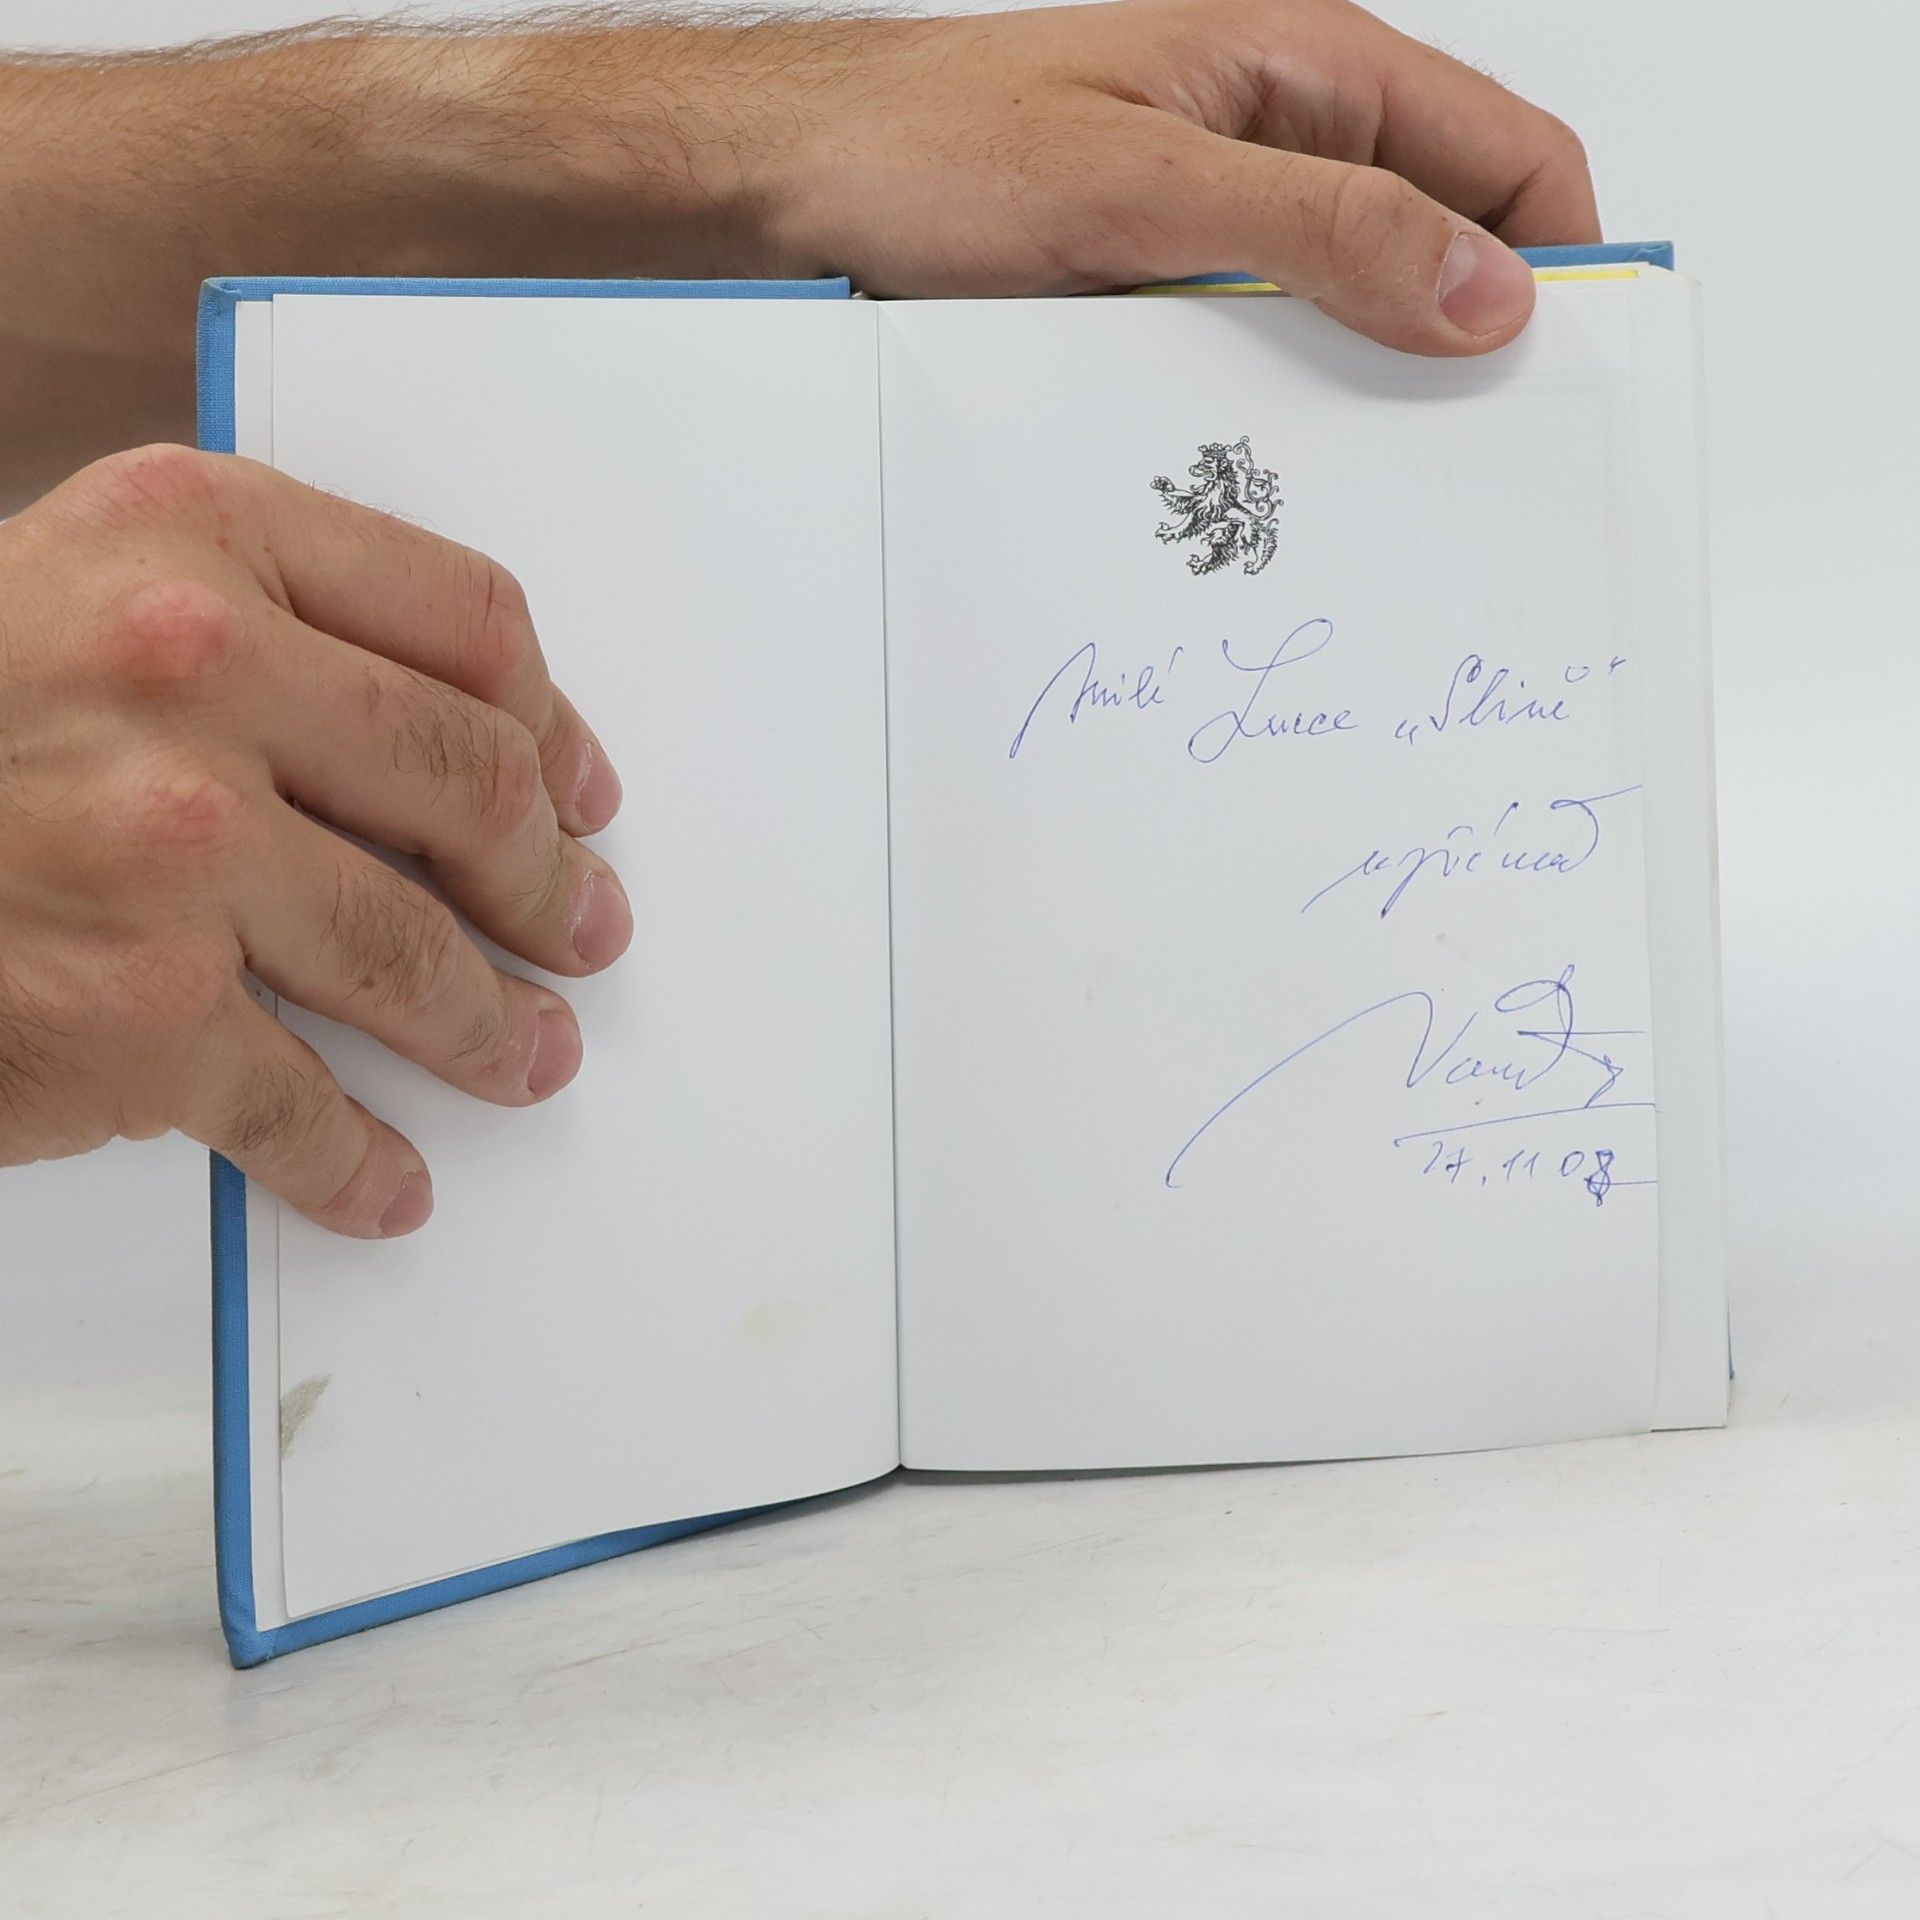 milé Lucce „Slině“
upřímně
27.11 08